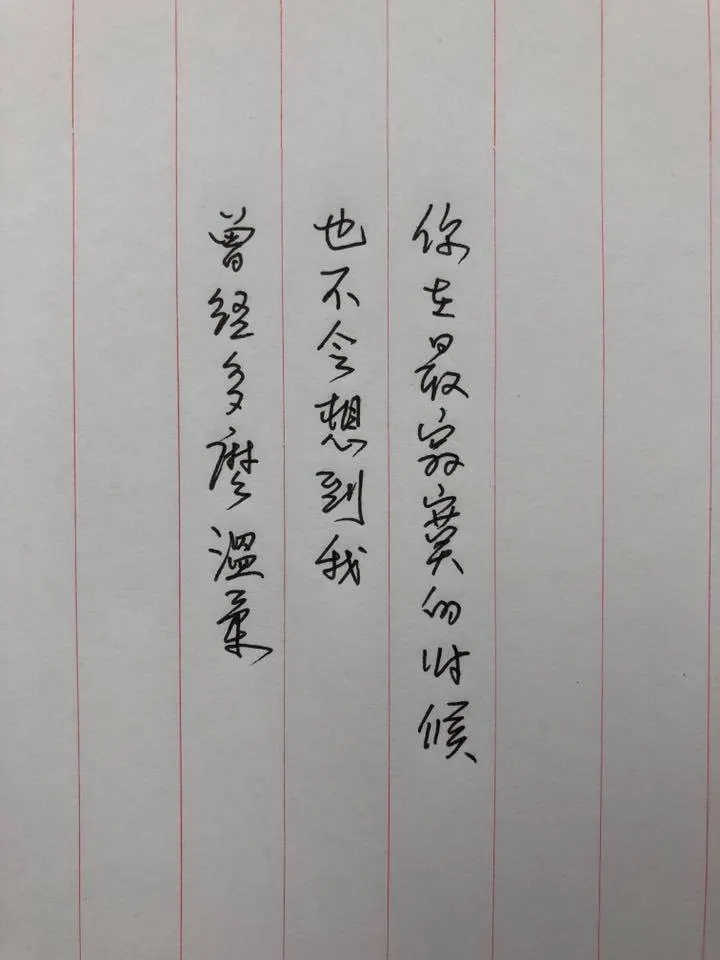 你在最寂寞的时候
也不会想到我
曾经多麼溫柔